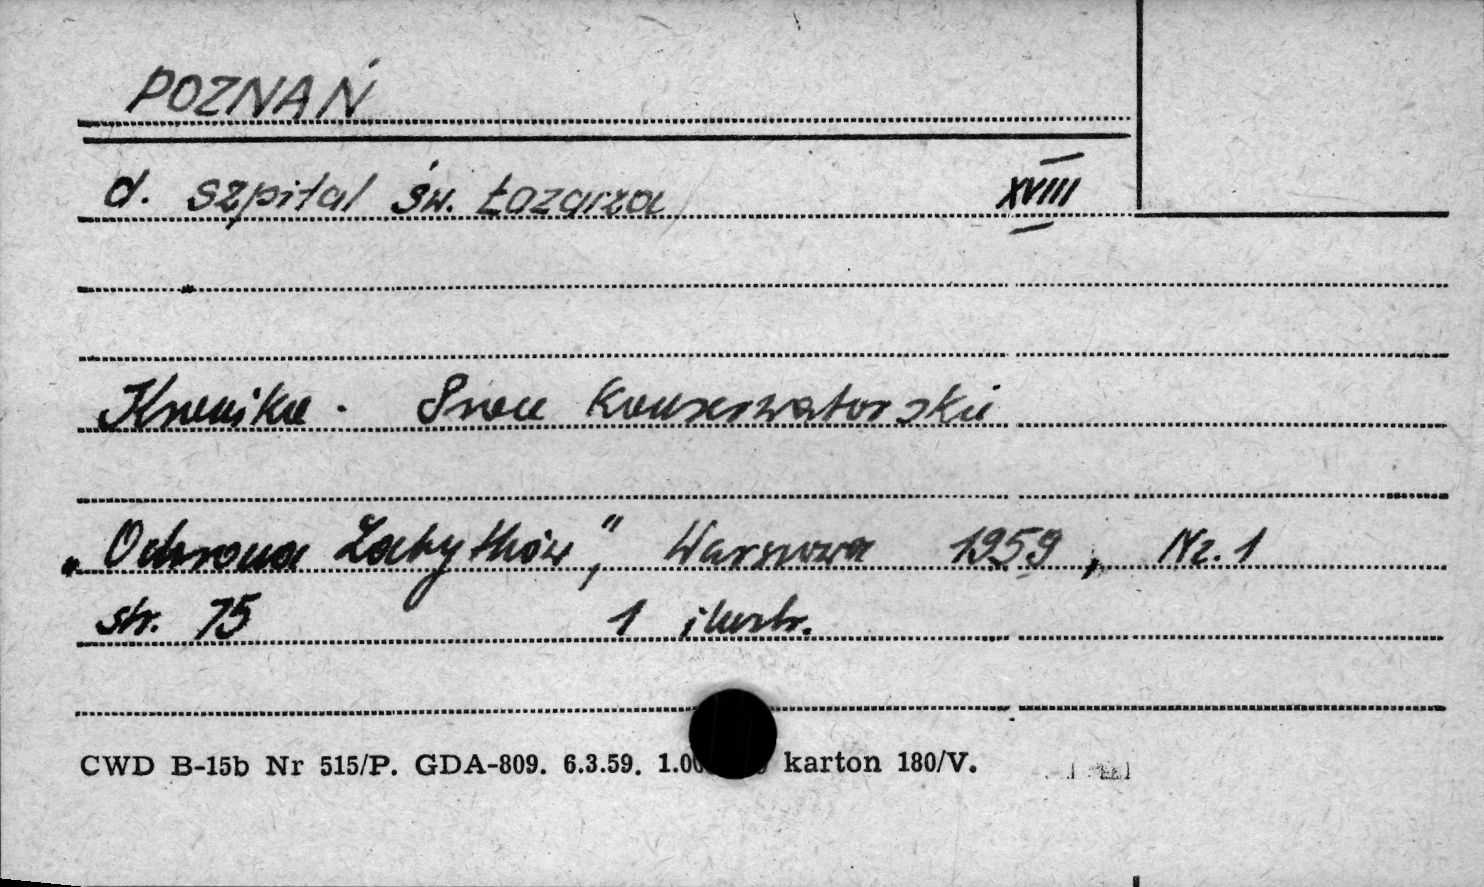 POZNAŃ
d. szpital św. Łazarza XVIII
Kronika. Prace Konserwatorskie
„Ochrona Zabytków”, Warszawa 1959, Nr. 1
str. 75 1 ilustr.
CWD B-15b Nr 515/P. GDA-809. 6.3.59. karton 180/V.